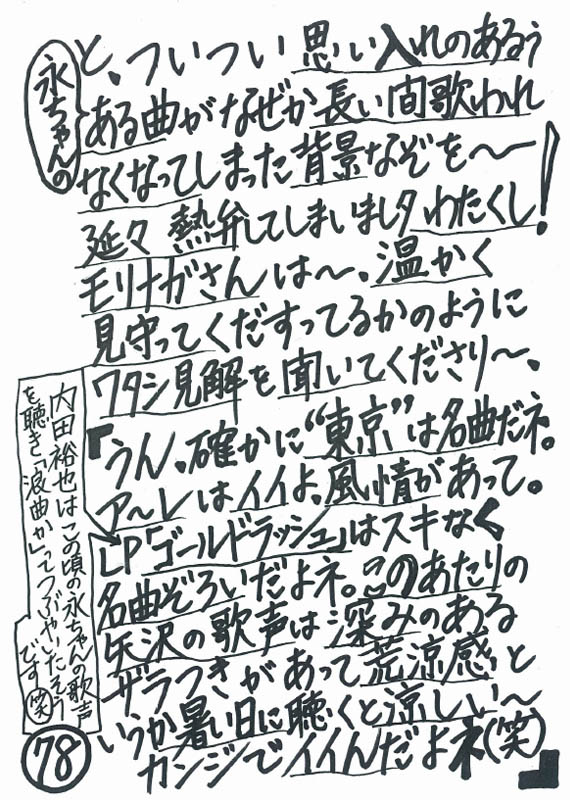 永ちゃんの
と、ついつい思い入れのあるぅ
ある曲がなぜか長い間歌われ
なくなってしまった背景なぞを〜
延々 熱弁してしまいましタわたくし!
モリナガさんは〜、温かく
見守ってくだすってるかのように
ワタシ見解を聞いてくださり〜、
『うん。確かに“東京”は名曲だネ。
ア〜レはイイよ、風情があって。
LP「ゴールドラッシュ」はスキなく
名曲ぞろいだよネ。このあたりの
矢沢の歌声は深みのある
ザラつきがあって荒涼感と
いうか暑い日に聴くと涼しい〜
カンジでイイんだよネ(笑)』
内田裕也はこの頃の永ちゃんの歌声
を聴き「浪曲か」ってつぶやいたそう
です(笑)
78